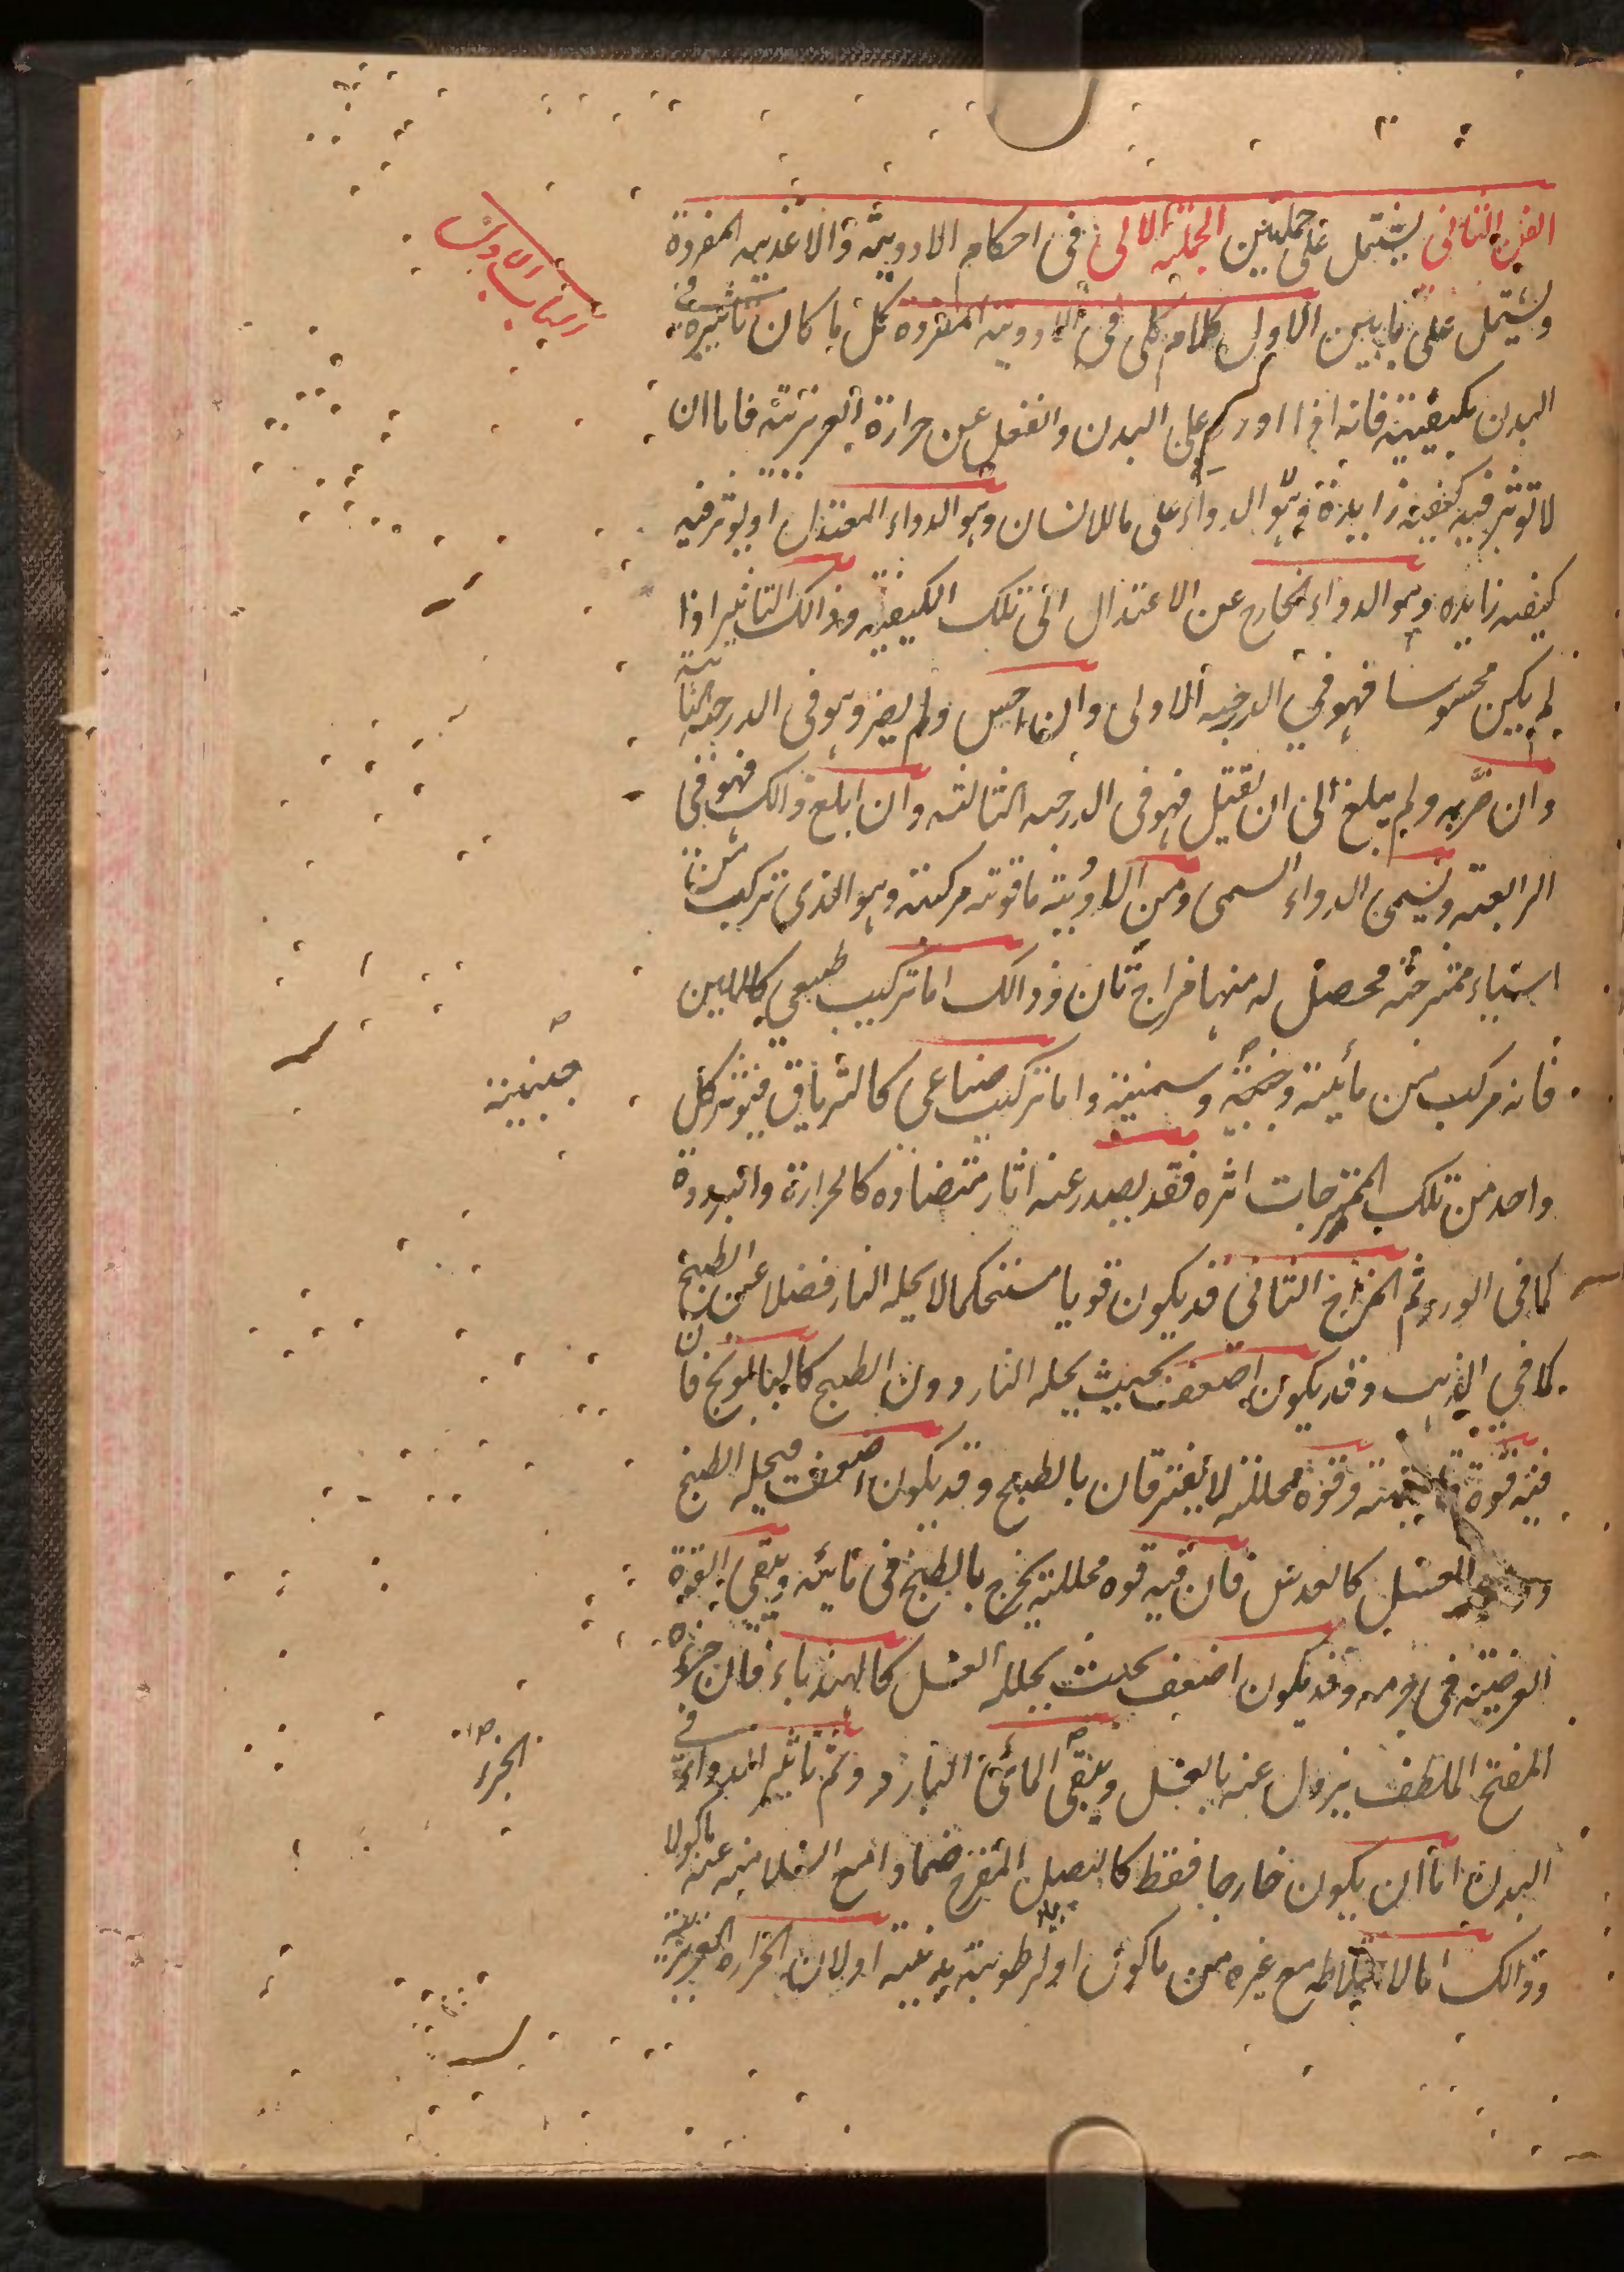 الفن الثانى يشتمل على جملتين الجملة الالى فى احكام الادوية والاغذيه المفردة
الباب الاول
ويشتمل على بابين الاول كلام كلى فى الادوية المفرده كل ما كان تاثيره فى
البدن بكيفيته فانه اذا اورد على البدن وانفعل عن حرارة الغريزية فاما ان
لا تؤثر فيه كيفية زايدة وهو الدواء على ما للانسان وهو الدواء المعتدل او يؤثر فيه
كيفيه زايده وهو الدواء الخارج عن الاعتدال الى تلك الكيفية وذالك التاثير اذا
لم يكن محسوسا فهو في الدرجه الاولى وان احس ولم يضر وهو فى الدرجه الثانية
وان ضربه ولم يبلغ الى ان يقتل فهو فى الدرجه الثالثه وان ابلغ ذالك فهو فى
الرابعة ويسمى الدواء السمى ومن الادوية ما قوته مركبة وهو الذى تركب من
اشياء ممتزجة محصل له منها مزاج ثان وذالك اما تركيب طبعي كاللبن
فانه مركب من مائية وجبنية وسمنية واما تركيب صناعى كالترياق فيؤثر كل
جبنية
واحد من تلك الممتزجات اثره فقد يصدر عنه اثار متضاده كالحرارة والبرودة
كما فى الورد ثم المزاج الثانى قد يكون قويا مستحكما لا يحله النار فضلا عن الطبخ
كما في الذهب وقد يكون اضعف بحيث يحله النار دون الطبخ كالبابونج فان
فيه قوة قابضة وقوة محللة لا يفترقان بالطبخ وقد يكون اضعف فيحله الطبخ
دون الغسل كالعدس فان فيه قوه محللة يخرج بالطبخ فى مائية ويبقى القوة
العرضية فى جرمه وقد يكون اضعف بحيث يحلله الغسل كالهندباء فان جزءه
المفتح الملطف يزول عنه بالغسل ويبقى المائى البارد وثم تاثير الدواء فى
الجزء
البدن اما ان يكون خارجا فقط كالبصل المقرح ضمادا مع السلامة عنه ماكولا
وذالك اما لاختلاطه مع غيره من ماكول او لرطوبة بدنية او لان الحراره الغريزية